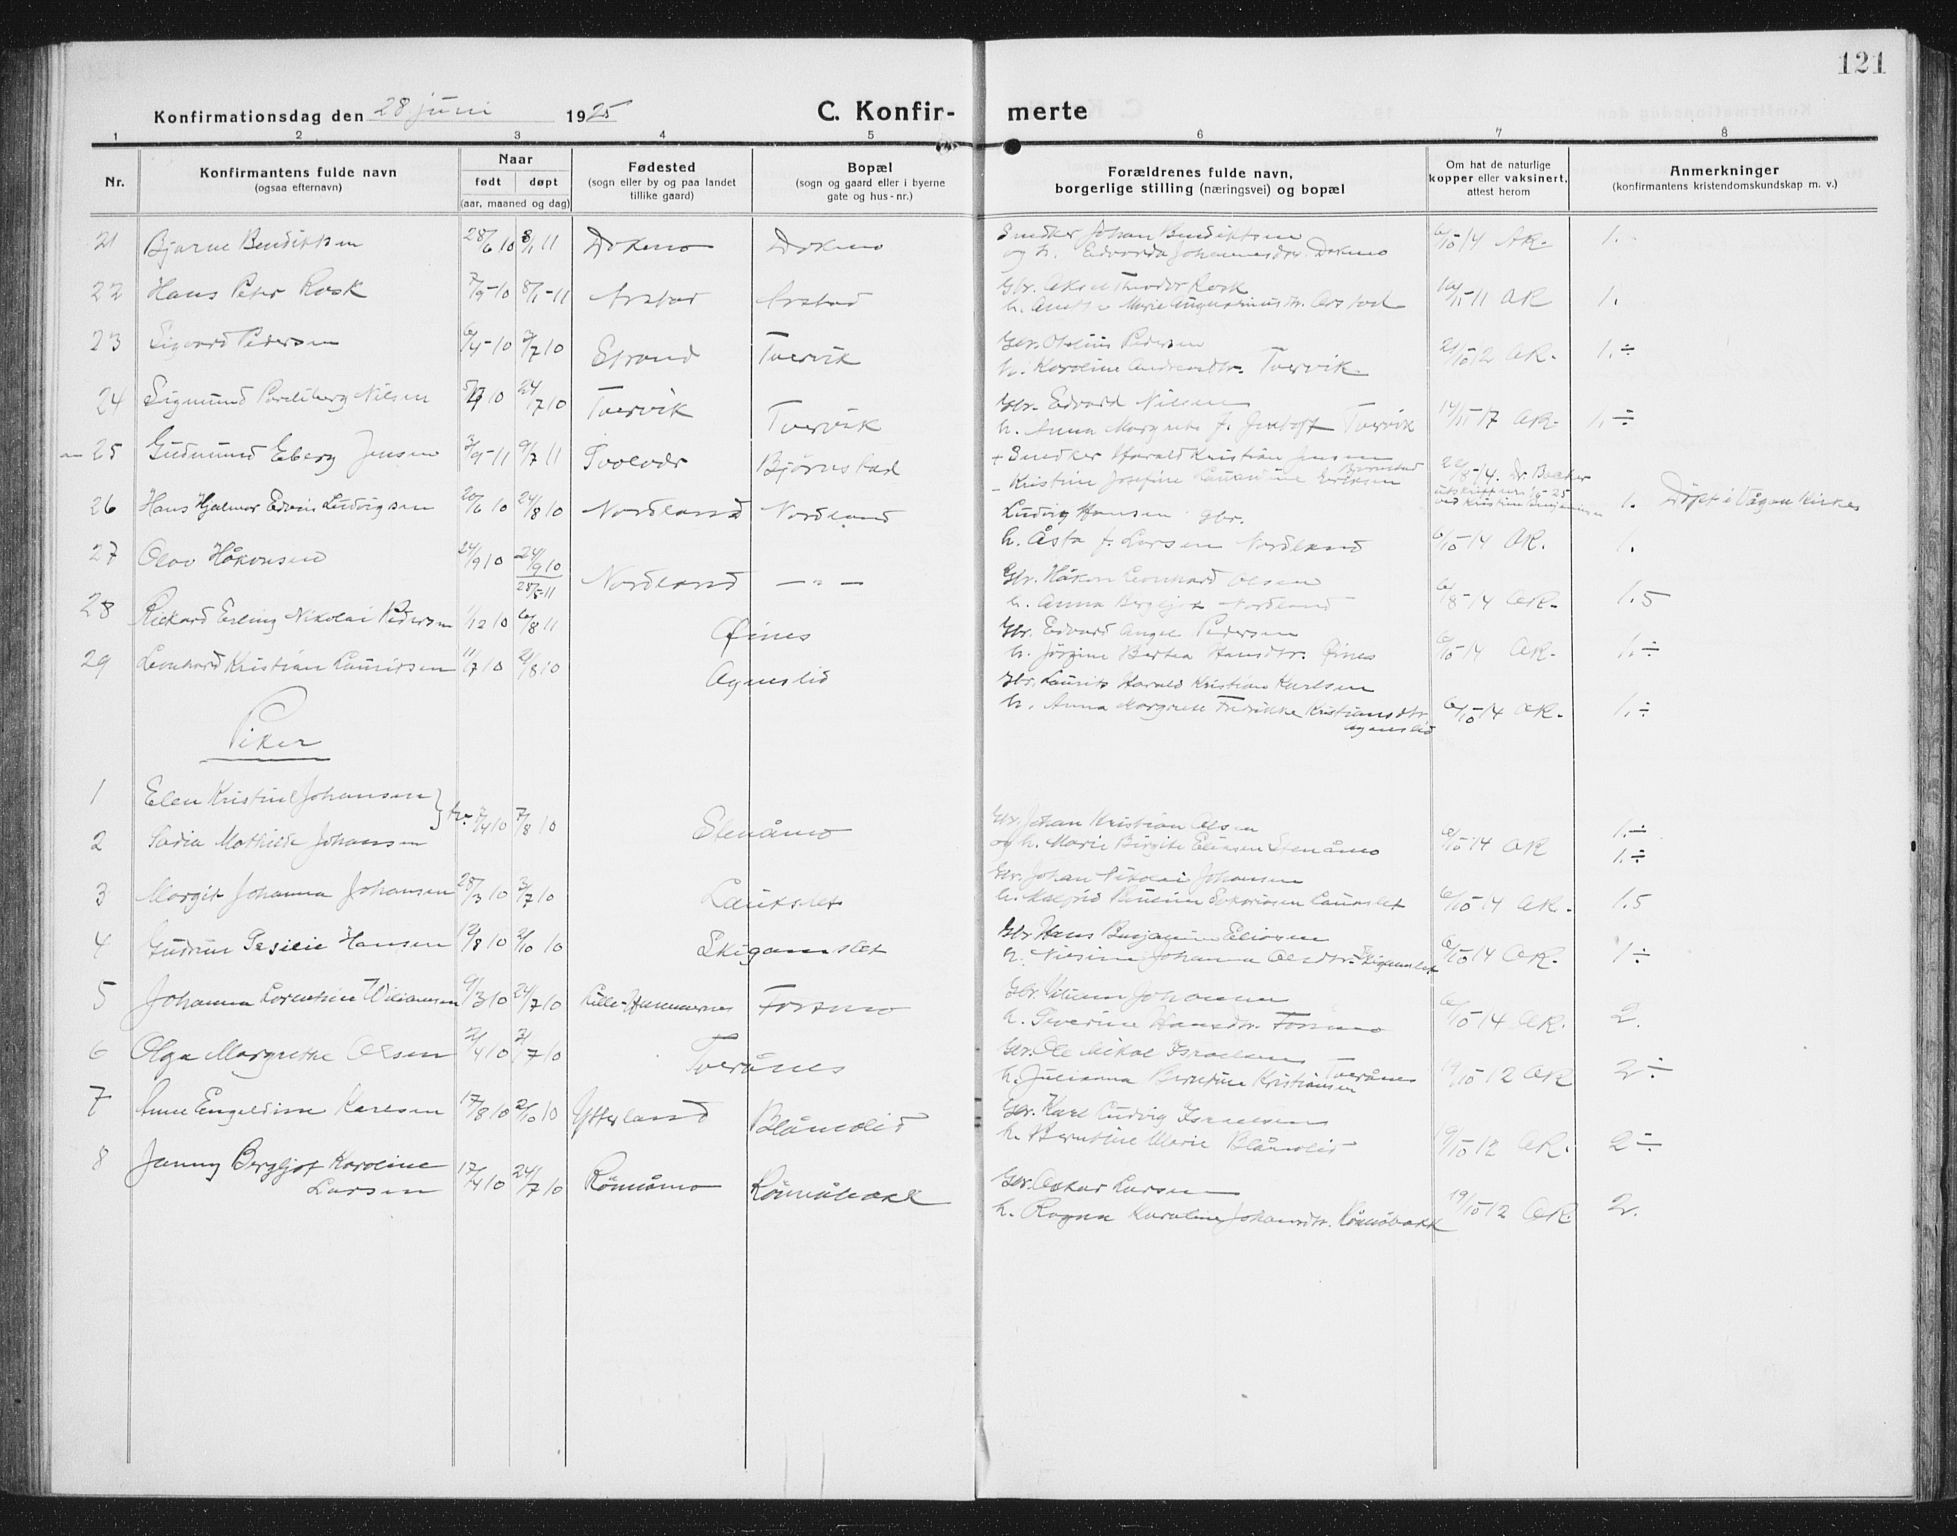 121
Konfirmationsdag den 28 juni 1925
C. Konfir- merte
1 2 3 4 5 6 7 8
Nr.
Konfirmantens fulde navn
(ogsaa efternavn)
Naar
født døpt
(aar, maaned og dag)
Fødested
(sogn eller by og paa landet
tillike gaard)
Bopæl
(sogn og gaard eller i byerne
gate og hus-nr.)
Forældrenes fulde navn,
borgerlige stilling (næringsvei) og bopæl
Om hat de naturlige
kopper eller vaksinert,
attest herom
Anmerkninger
(konfirmantens kristendomskundskap m. v.)
21 Bjarne Bendiktsen 28/6 10 8/1 11 Dokmo Dokmo
Snedker Johan Bendiktsen
og h. Edvarda Johannesdtr. Dokmo 6/10 14 AR. 1.
22 Hans Peter Rask 7/9-10 8/1-11 Arstad Arstad
Gbr. Aksel Theodor Rask
h. Marie Augustinusdtr. Arstad 11 AR 1.
23 Sigvard Pedersen 6/4-10 3/7 10 Strand Tvervik
Gbr. Pedersen
h. Karoline Andreasdtr. Tvervik 21/10 12 AR. 1. ÷
24 Sigmund Nilsen 10 24/7 10 Tvervik Tvervik
Gbr. Edvard Nilsen
h. Anna Margrete f. Jentoft Tvervik 17 AR. 1. ÷
25 Gudmund Eberg Jensen 3/9-11 9/7 11 Svolvær Bjørnstad
+ Snedker Harald Kristian Jensen
- Kristine Josefine Eriksen Bjørnstad
26 Hans Hjalmar Edvin Ludvigsen 20/6 10 24/8 10 Nordland Nordland
Ludvig Hansen gbr.
h. Åsta f. Larsen Nordland 6/10 14 AR. 1.
1. Døpt i Vågan Kirke
27 Olav Håkonsen 24/9 10 24/9 10 Nordland — " —
28/5-11
Gbr. Håkon Leonhard Olsen
h. Anna Bergljot Nordland 6/8-14 AR. 1.5
28 Rikard Erling Nikolai Pedersen 1/12 10 6/8 11 Øines
Gbr. Edvard Angel Pedersen
h. Jörgine Berthea Hansdtr. Øines 6/10 14 AR. 1. ÷
29 Leonhard Kristian Lauritsen 11/7 10 21/8 10 Agneslid
Gbr. Laurits Harald Kristian Karlsen
h. Anna Margrete Fredrikke Kristiansdtr.
Agneslid 6/10 14 AR. 1. ÷
Piker
1 Elen Kristine Johansen } tv. 7/4 10 7/8 10 Stenåmo
2 Mathilde Johansen
Gbr. Johan Kristian Olsen
og h. Marie Birgite Eliasen Stenåmo 6/10 14 AR 1. ÷
1. ÷
3 Margit Johanna Johansen 28/3 10 3/7 10
Gbr. Johan Nikolai Johansen
h. 6/10 14 AR. 1.5
4 Gudrun Hansen 12/8 10 2/10 10 Skigamslet
Gbr. Hans Benjamin Eliasen
h. Johanna Olsdtr. Skigamslet 6/10 14 AR. 1 ÷
5 Johanna Lorentine Wiliamsen 9/3 10 24/7 10 Lille-Hammernes Forsmo
Gbr. Johansen
h. Severine Hansdtr. Forsmo 6/10 14 AR. 2.
6 Olga Margrethe Olsen 21/4 10 7 10 Tverånes
Gbr. Ole Mikal Israelsen
h. Julianna Berntine Kristiansen Tverånes 19/10 12 AR 2 ÷
7 Anne Engeldine Karlsen 17/8 10 2/10 10 Ytterland Blåmolid
Gbr. Karl Ludvig Israelsen
h. Berntine Marie Blåmolid 19/10 12 AR. 2 ÷
8 Jenny Bergljot Karoline
Larsen 17/4 10 24/7 10 Rönnåmo Rönnåbakk
Gbr. Oskar Larsen
h. Ragna Karoline Johansdtr. Rönnåbakk 19/10 12 AR 2.